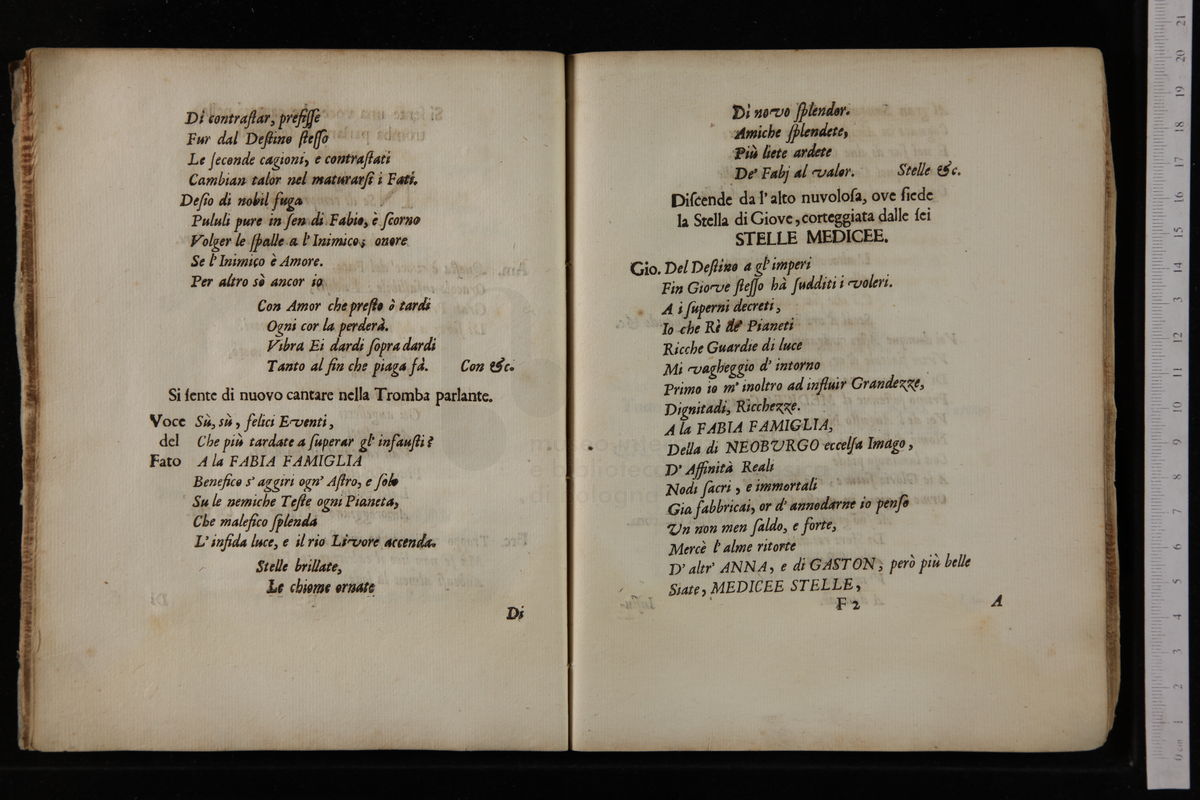 Di contraſtar, prefiſſe
Fur dal Deſtino ſteſſo
Le ſeconde cagioni, e contraſtati
Cambian talor nel maturarſi i Fati.
Deſio di nobil fuga
Pululi pure in ſen di Fabio, è ſcorno
Volger le ſpalle a l'Inimico; onore
Se l'Inimico è Amore.
Per altro sò ancor io
Con Amor che preſto ò tardi
Ogni cor la perderà.
Vibra Ei dardi ſopra dardi
Tanto al fin che piaga fà. Con &c.
Si ſente di nuovo cantare nella Tromba parlante.
Voce Sù, sù, felici Eventi,
del Che più tardate a ſuperar gl' infauſti?
Fato A la FABIA FAMIGLIA
Benefico s' aggiri ogn' Aſtro, e ſolo
Su le nemiche Teſte ogni Pianeta,
Che malefico ſplenda
L' infida luce, e il rio Livore accenda.
Stelle brillate,
Le chiome ornate
Di
Di novo ſplendor.
Amiche ſplendete,
Più liete ardete
De' Fabj al valor. Stelle &c.
Diſcende da l' alto nuvoloſa, ove ſiede
la Stella di Giove, corteggiata dalle ſei
STELLE MEDICEE.
Gio. Del Deſtino a gl' imperi
Fin Giove ſteſſo hà ſudditi i voleri.
A i ſuperni decreti,
Io che Rè de' Pianeti
Ricche Guardie di luce
Mi vagheggio d' intorno
Primo io m' inoltro ad influir Grandezze,
Dignitadi, Ricchezze.
A la FABIA FAMIGLIA,
Della di NEOBVRGO eccelſa Imago,
D' Affinità Reali
Nodi ſacri, e immortali
Gia fabbricai, or d' annodarne io penſo
Vn non men ſaldo, e forte,
Mercè l' alme ritorte
D' altr' ANNA, e di GASTON, però più belle
Siate, MEDICEE STELLE,
F 2 A